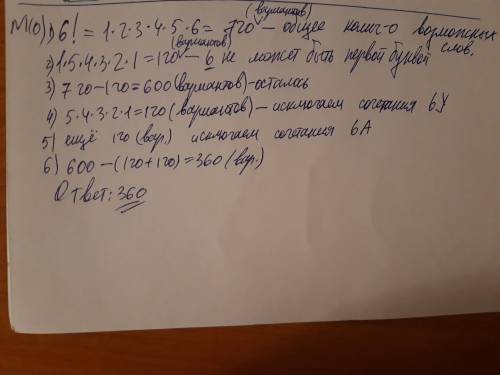 М(О)1) 6! = 1·2·3·4·5·6 = 720 (вариантов) – общее колич-о возможных слов.
2) 1·5·4·3·2·1 = 120 (вариантов) – ь не может быть первой буквой
3) 720 – 120 = 600 (вариантов) – осталось
4) 5·4·3·2·1 = 120 (вариантов) – исключаем сочетания ьУ
5) ещё 120 (вар.) исключаем сочетания ьА
6) 600 – (120+120) = 360 (вар.)
Ответ: 360